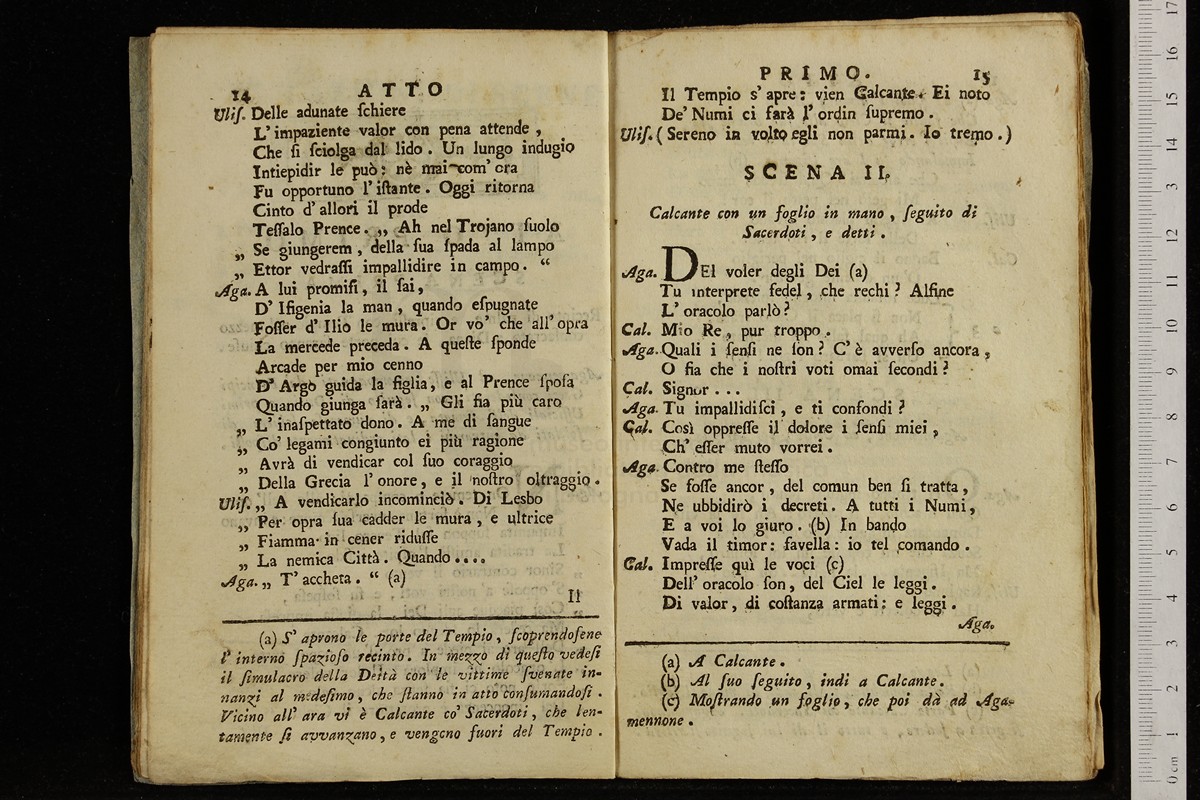 14 ATTO
Ulis. Delle adunate schiere
L' impaziente valor con pena attende,
Che si sciolga dal lido. Un lungo indugio
Intiepidir le può: nè mai com' ora
Fu opportuno l' istante. Oggi ritorna
Cinto d' allori il prode
Tessalo Prence. „ Ah nel Trojano suolo
„ Se giungerem, della sua spada al lampo
„ Ettor vedrassi impallidire in campo. “
Aga. A lui promisi, il sai,
D' Ifigenia la man, quando espugnate
Fosser d' Ilio le mura. Or vò' che all' opra
La mercede preceda. A queste sponde
Arcade per mio cenno
D' Argo guida la figlia, e al Prence sposa
Quando giunga sarà. „ Gli fia più caro
„ L' inaspettato dono. A me di sangue
„ Co' legami congiunto ei più ragione
„ Avrà di vendicar col suo coraggio
„ Della Grecia l' onore, e il nostro oltraggio.
Ulis. „ A vendicarlo incominciò. Di Lesbo
„ Per opra sua cadder le mura, e ultrice
„ Fiamma in cener ridusse
„ La nemica Città. Quando....
Aga. „ T' accheta. “ (a)
Il
(a) S' aprono le porte del Tempio, scoprendosene
l' interno spazioso recinto. In mezzo di questo vedesi
il simulacro della Deità con le vittime svenate in-
nanzi al medesimo, che stanno in atto consumandosi.
Vicino all' ara vi è Calcante co' Sacerdoti, che len-
tamente si avvanzano, e vengono fuori del Tempio.
PRIMO. 15
Il Tempio s' apre: vien Calcante. Ei noto
De' Numi ci farà l' ordin supremo.
Ulis. (Sereno in volto egli non parmi. Io tremo.)
SCENA II.
Calcante con un foglio in mano, seguito di
Sacerdoti, e detti.
Aga. DEl voler degli Dei (a)
Tu interprete fedel, che rechi? Alfine
L' oracolo parlò?
Cal. Mio Re, pur troppo.
Aga. Quali i sensi ne son? C' è avverso ancora,
O fia che i nostri voti omai secondi?
Cal. Signor...
Aga. Tu impallidisci, e ti confondi?
Cal. Così oppresse il dolore i sensi miei,
Ch' esser muto vorrei.
Aga. Contro me stesso
Se fosse ancor, del comun ben si tratta,
Ne ubbidirò i decreti. A tutti i Numi,
E a voi lo giuro. (b) In bando
Vada il timor: favella: io tel comando.
Cal. Impresse quì le voci (c)
Dell' oracolo son, del Ciel le leggi.
Di valor, di costanza armati; e leggi.
Aga.
(a) A Calcante.
(b) Al suo seguito, indi a Calcante.
(c) Mostrando un foglio, che poi dà ad Aga-
mennone.
0 cm 1 2 3 4 5 6 7 8 9 10 11 12 13 14 15 16 17